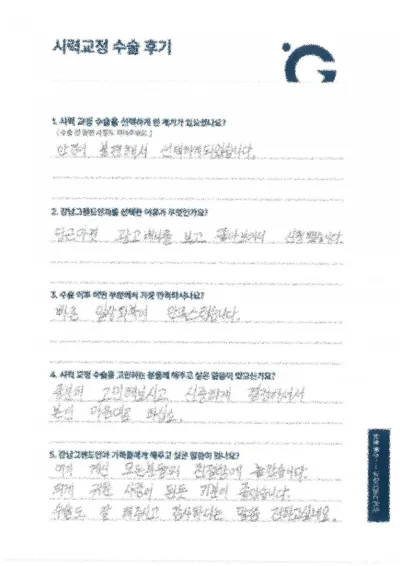 시력교정 수술 후기
G
1. 시력 교정 수술을 선택하게 된 계기가 있으셨나요?
(수술 전 불편 사항도 적어주세요.)
안경이 불편해서 선택하게되었습니다.
2. 강남그랜드안과를 선택한 이유가 무엇인가요?
당근마켓 광고 보고 신청했습니다.
3. 수술 이후 어떤 부분에서 가장 만족하시나요?
빠른 일상회복이 만족스럽습니다.
4. 시력 교정 수술을 고민하는 분들께 해주고 싶은 말씀이 있으신가요?
충분히 고민해보시고 신중하게 결정하셔서
본인 마음대로 하십쇼
5. 강남그랜드안과 가족들에게 해주고 싶은 말씀이 있나요?
여기 계신 모든분들의 친절함에 놀랐습니다.
되게 귀한 사람이 된듯 기분이 좋았습니다.
수술도 잘 해주시고 감사하다는 말씀 전하고싶네요.